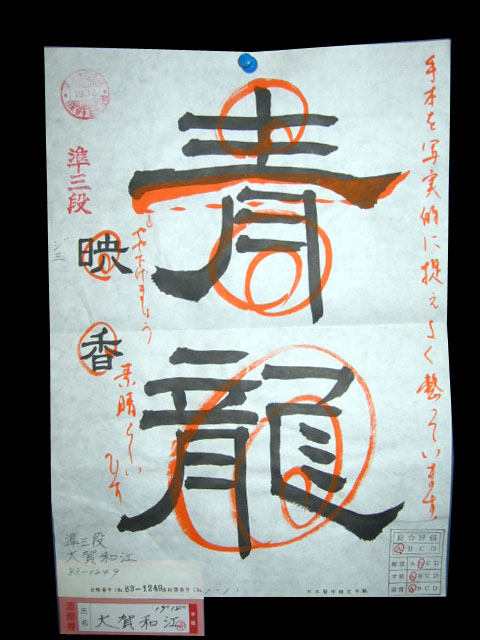 手本を写実的に捉えよく整っています。
青龍
準三段
映香
素晴らしいです
準三段
大賀和江
83-1249
総合評価
A B C D
配置 A B C D
字形 A B C D
A B C D
83-1249
添削券
氏名 大賀和江